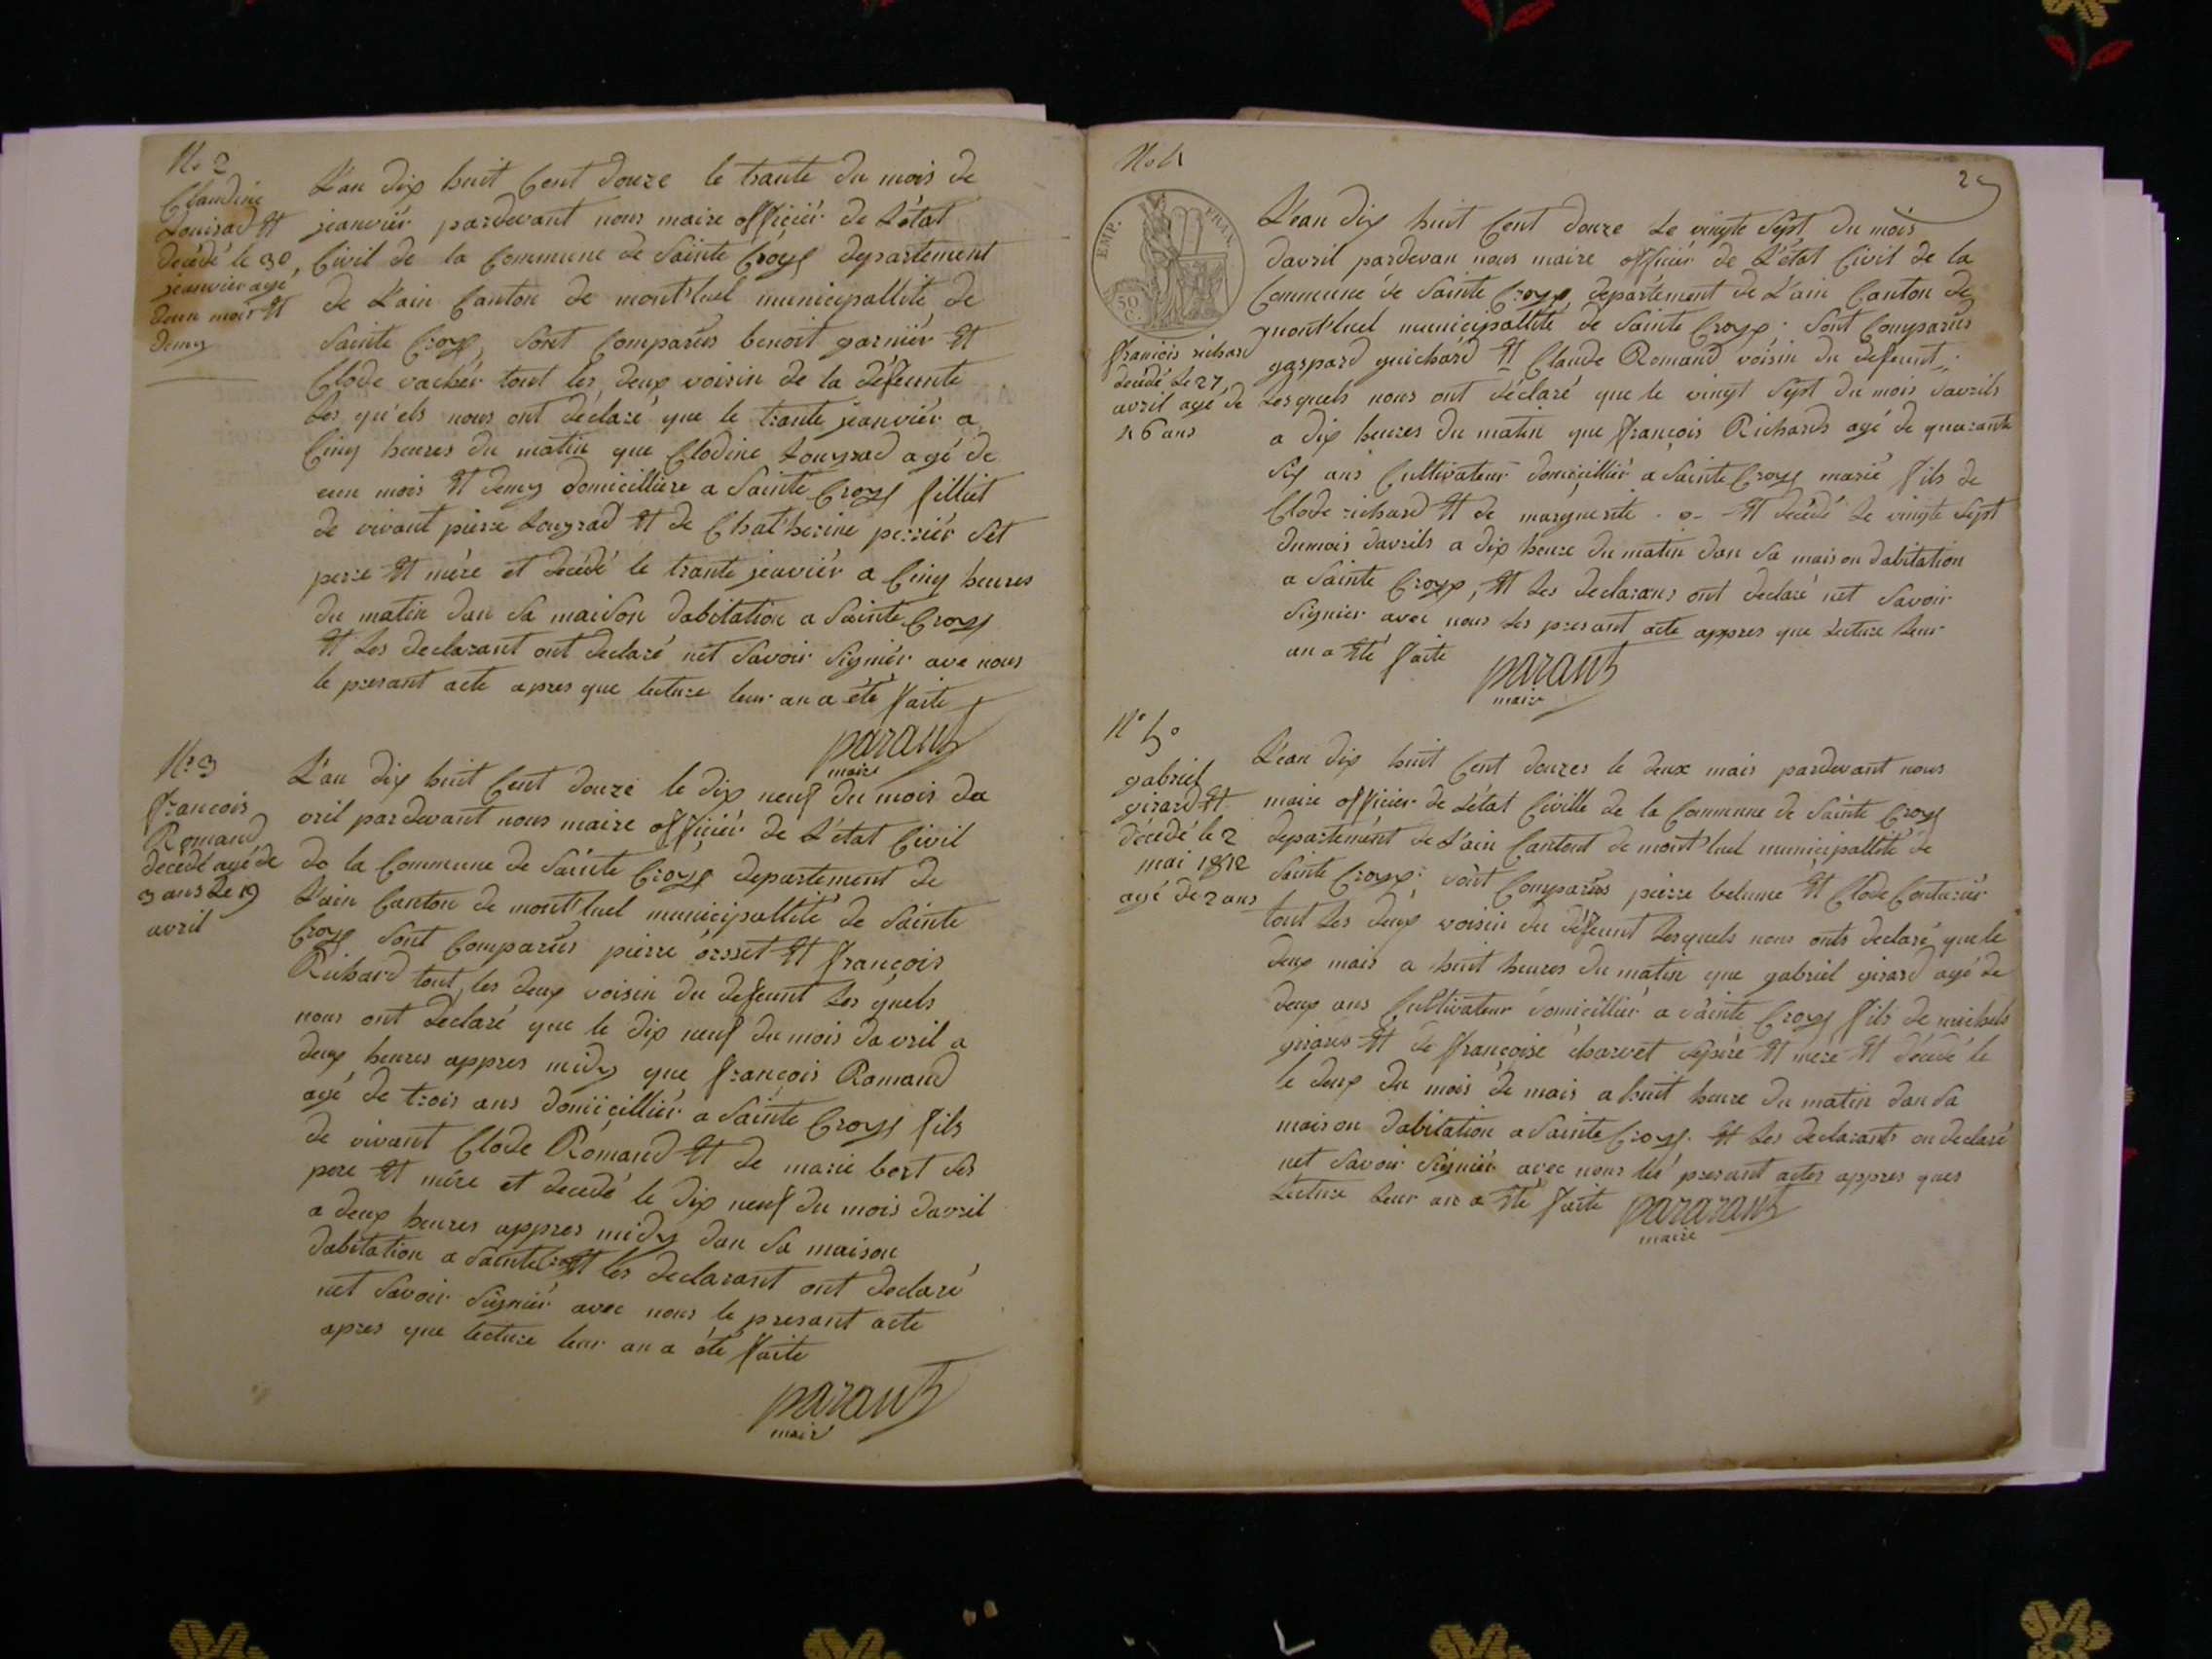 No 2
Claudine
Louirad et
decédé le 30
jeanvier agé
deun mois et
demy
L'an dix huit Cent douze le trante du mois de
jeanviér pardevant nous maire officiér de L'état
Civil de la Commune de Sainte Croyx departement
de L'ain Canton de mont'luel municipallité de
Sainte Croyx, Sont Comparûs benoit garniér et
Clode vachér tout les deux voisin de la défeunte
Les qu'els nous ont déclaré que le trante jeanviér a
Cinq heures du matin que Clodine Louyrad agé de
eun mois et demy domicilliére a Sainte Croyx filliet
de vivant pierre Louyrad et de Chatherine perriér Set
perre et mére et décédé le trante jeaviér a Cinq heures
du matin dan Sa maison dabitation a Sainte Croyx
et Les declarant ont declaré nèt Savoir Signiér ave nous
le presant acte apres que lecture leur an a été faite
parant
maire
No 3
francois
Romand
decédé agé de
3 ans Le 19
avril
L'an dix huit Cent douze le dix neuf du mois da
vril pardevant nous maire officiér de L'état Civil
de la Commune de Sainte Croyx departement de
L'ain Canton de mont'luel municipallité de Sainte
Croyx Sont Comparûs pierre orsset et françois
Richard tout les deux voisin du defeunt Les quels
nous ont déclaré que le dix neuf du mois davril a
deux heures appres midy que francois Romand
agé de trois ans domicilliér a Sainte Croyx fils
de vivant Clode Romand et de marie bert Ses
pere et mére et decedé le dix neuf du mois davril
a deux heures appres midy dan Sa maison
dabitation a Sainte et les declarant ont declaré
nèt Savoir Signiér avec nous le presant acte
apres que lecture leur an a été faite
parant
mair
No 4
EMP. FRAN.
50
C.
françois richard
decédé Le 27
avril agé de
46 ans
L'ean dix huit Cent douze Le vingte Sept du mois
davril pardevan nous maire officiér de L'état Civil de la
Commune de Sainte Croyx, departement de L'ain Canton de
mont'luel municipallité de Sainte Croyx. Sont Comparûs
gaspard guichard et Claude Romand voisin du defeunt
Lesquels nous ont déclaré que le vingt Sept du mois davrils
a dix heures du matin que françois Richards agé de quarante
Six ans Cultivateur domicilliér a Sainte Croyx marié fils de
Clode richard et de marguerite - o - et decédé Le vingte Sept
dumois davrils a dix heure du matin dan Sa maison dabitation
a Sainte Croyx, et Les declarans ont declaré net Savoir
Signier avec nous Les presant acte appres que Lecture Leur
an a été faite
parant
mair
No 5o
gabriel
girard et
décédé le 2
mai 1812
agé de 2 ans
L'ean dix huit Cent douzes le deux mais pardevant nous
maire officiér de L'état Civille de la Commune de Sainte Croyx
departement de L'ain Cantont de mont'luel municipallité de
Sainte Croyx: Sont Comparûs pierre belume et Clode Conturiér
tout Les deux voisin du défeunt Lesquels nous onts declaré que le
deux mais a huit heures du matin que gabriel girard agé de
deux ans Cultivateur domicilliér a Sainte Croyx fils de michels
girard et de françoise charvet Sepére et mére et décédé le
le deux du mois de mais a huit heure du matin dan Sa
maison dabitation a Sainte Croyx. et Les declarants on declaré
net Savoir Signiér avec nous lés presant actes appres ques
Lecture Leur an a été faite
pararant
maire